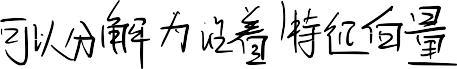 可以分解为沿着特征向量